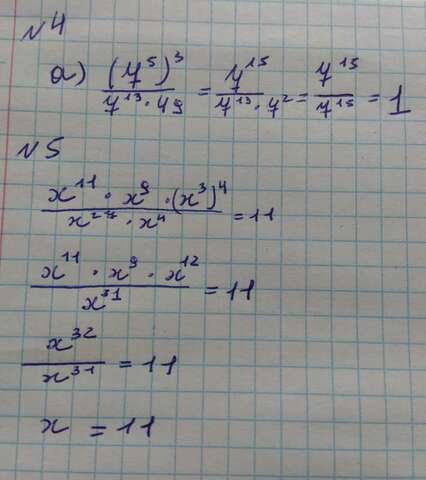 №4
а) (7⁵)³ / 7¹³ · 49 = 7¹⁵ / 7¹³ · 7² = 7¹⁵ / 7¹⁵ = 1
№5
x¹¹ · x⁹ · (x³)⁴ / x²⁷ · x⁴ = 11
x¹¹ · x⁹ · x¹² / x³¹ = 11
x³² / x³¹ = 11
x = 11